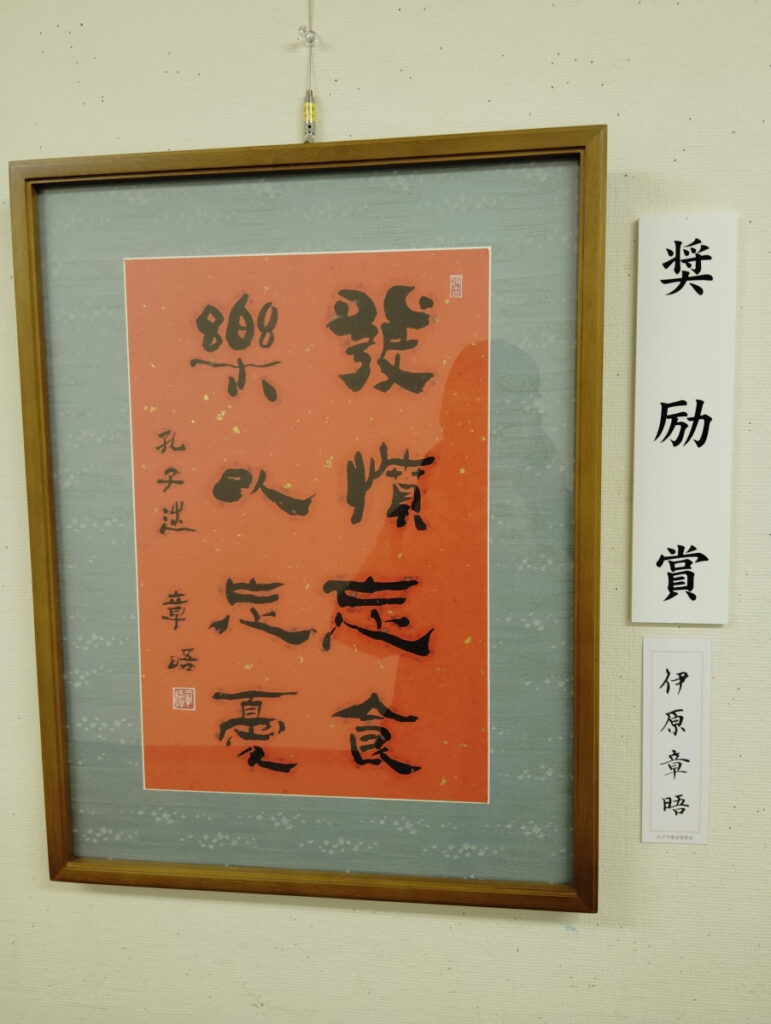 發憤忘食
樂以忘憂
孔子述 章晤
奨励賞
伊原章晤